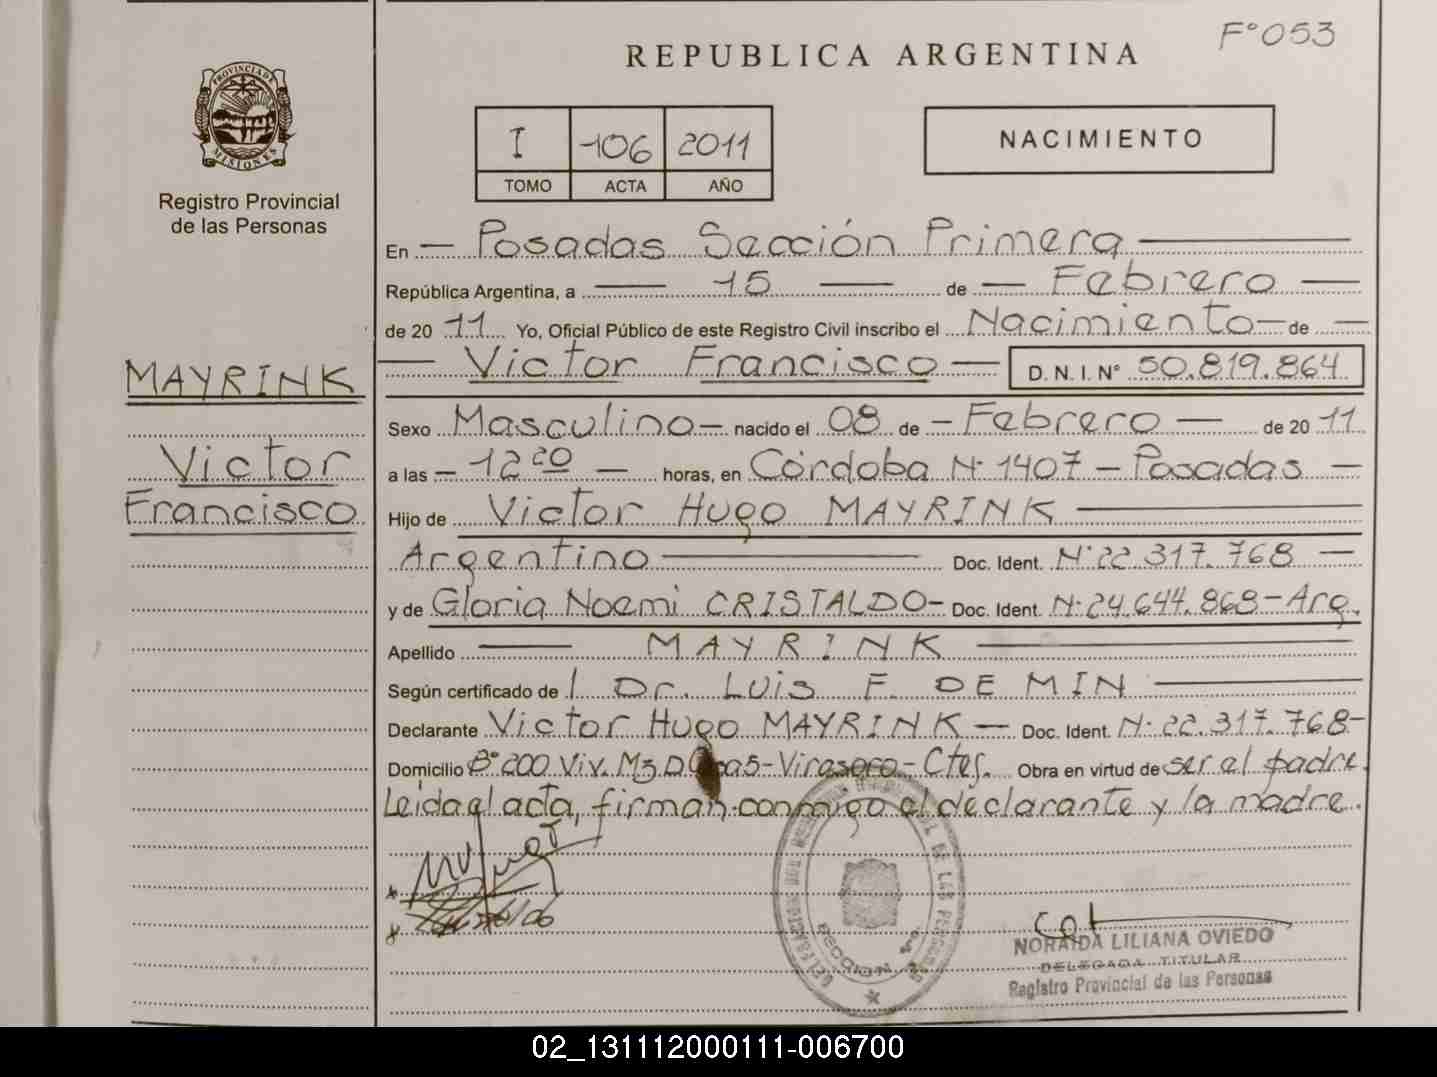 F°053
REPUBLICA ARGENTINA
PROVINCIA DE
MISIONES
Registro Provincial
de las Personas
I 106 2011
TOMO ACTA AÑO
NACIMIENTO
En — Posadas Sección Primera —
República Argentina, a — 15 — de — Febrero —
de 2011 Yo, Oficial Público de este Registro Civil inscribo el Nacimiento — de —
— Victor Francisco — D. N. I. N° 50.819.864
MAYRINK
Victor
Francisco
Sexo Masculino — nacido el 08 de — Febrero — de 2011
a las — 12 20 — horas, en Córdoba N° 1407 — Posadas —
Hijo de Victor Hugo MAYRINK —
Argentino — Doc. Ident. N° 22.317.768 —
y de Gloria Noemi CRISTALDO — Doc. Ident. N° 24.644.868 — Arg.
Apellido — MAYRINK —
Según certificado de Dr. Luis F. DE MIN —
Declarante Victor Hugo MAYRINK — Doc. Ident. N° 22.317.768 —
Domicilio B° 200 Viv. Mz D - Virasoro - Ctes. Obra en virtud de ser el padre.
Leida el acta, firman conmigo el declarante y la madre.
NORAIDA LILIANA OVIEDO
DELEGADA TITULAR
Registro Provincial de las Personas
02_131112000111-006700